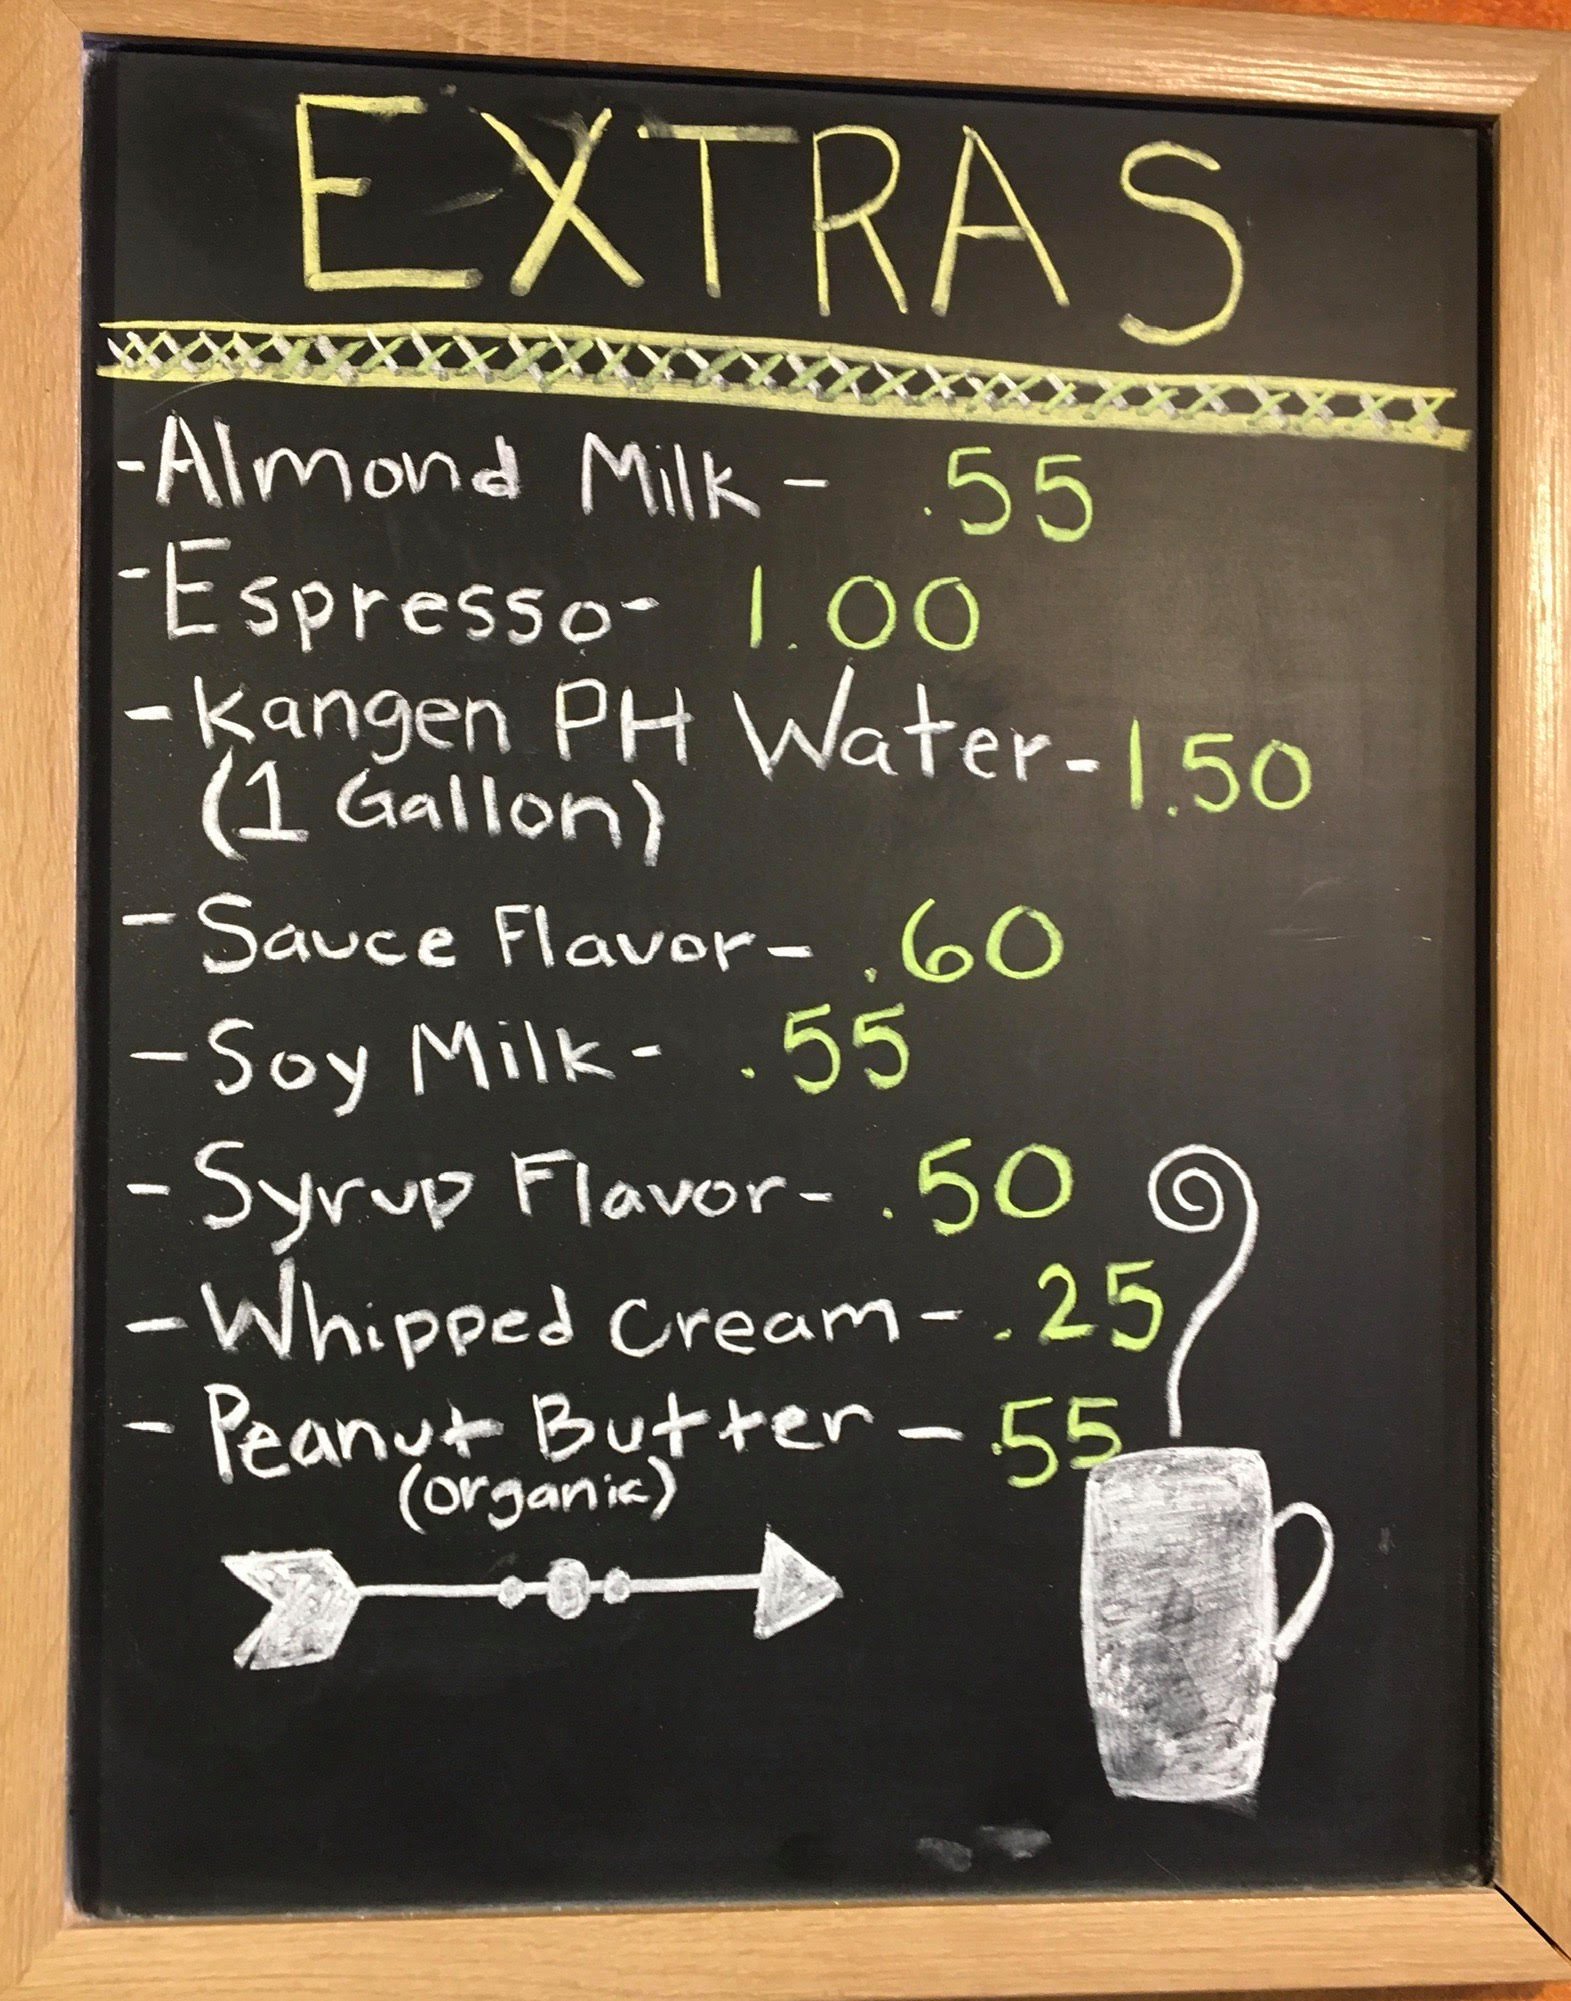 EXTRAS
-Almond Milk - .55
-Espresso- 1.00
-Kangen PH Water-1.50
(1 Gallon)
-Sauce Flavor- .60
-Soy Milk- .55
-Syrup Flavor- .50
-Whipped Cream- .25
-Peanut Butter - .55
(organic)